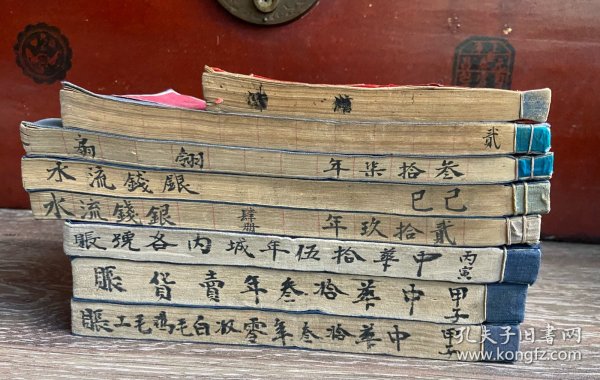 貳
叁拾柒年 翎扇
己巳 銀錢流水
貳拾玖年 肆冊 銀錢流水
丙寅 中華拾伍年城內各號賬
甲子 中華拾叁年賣貨賬
甲子 中華拾叁年零收白毛鸡毛工賬
孔夫子旧书网
www.kongfz.com